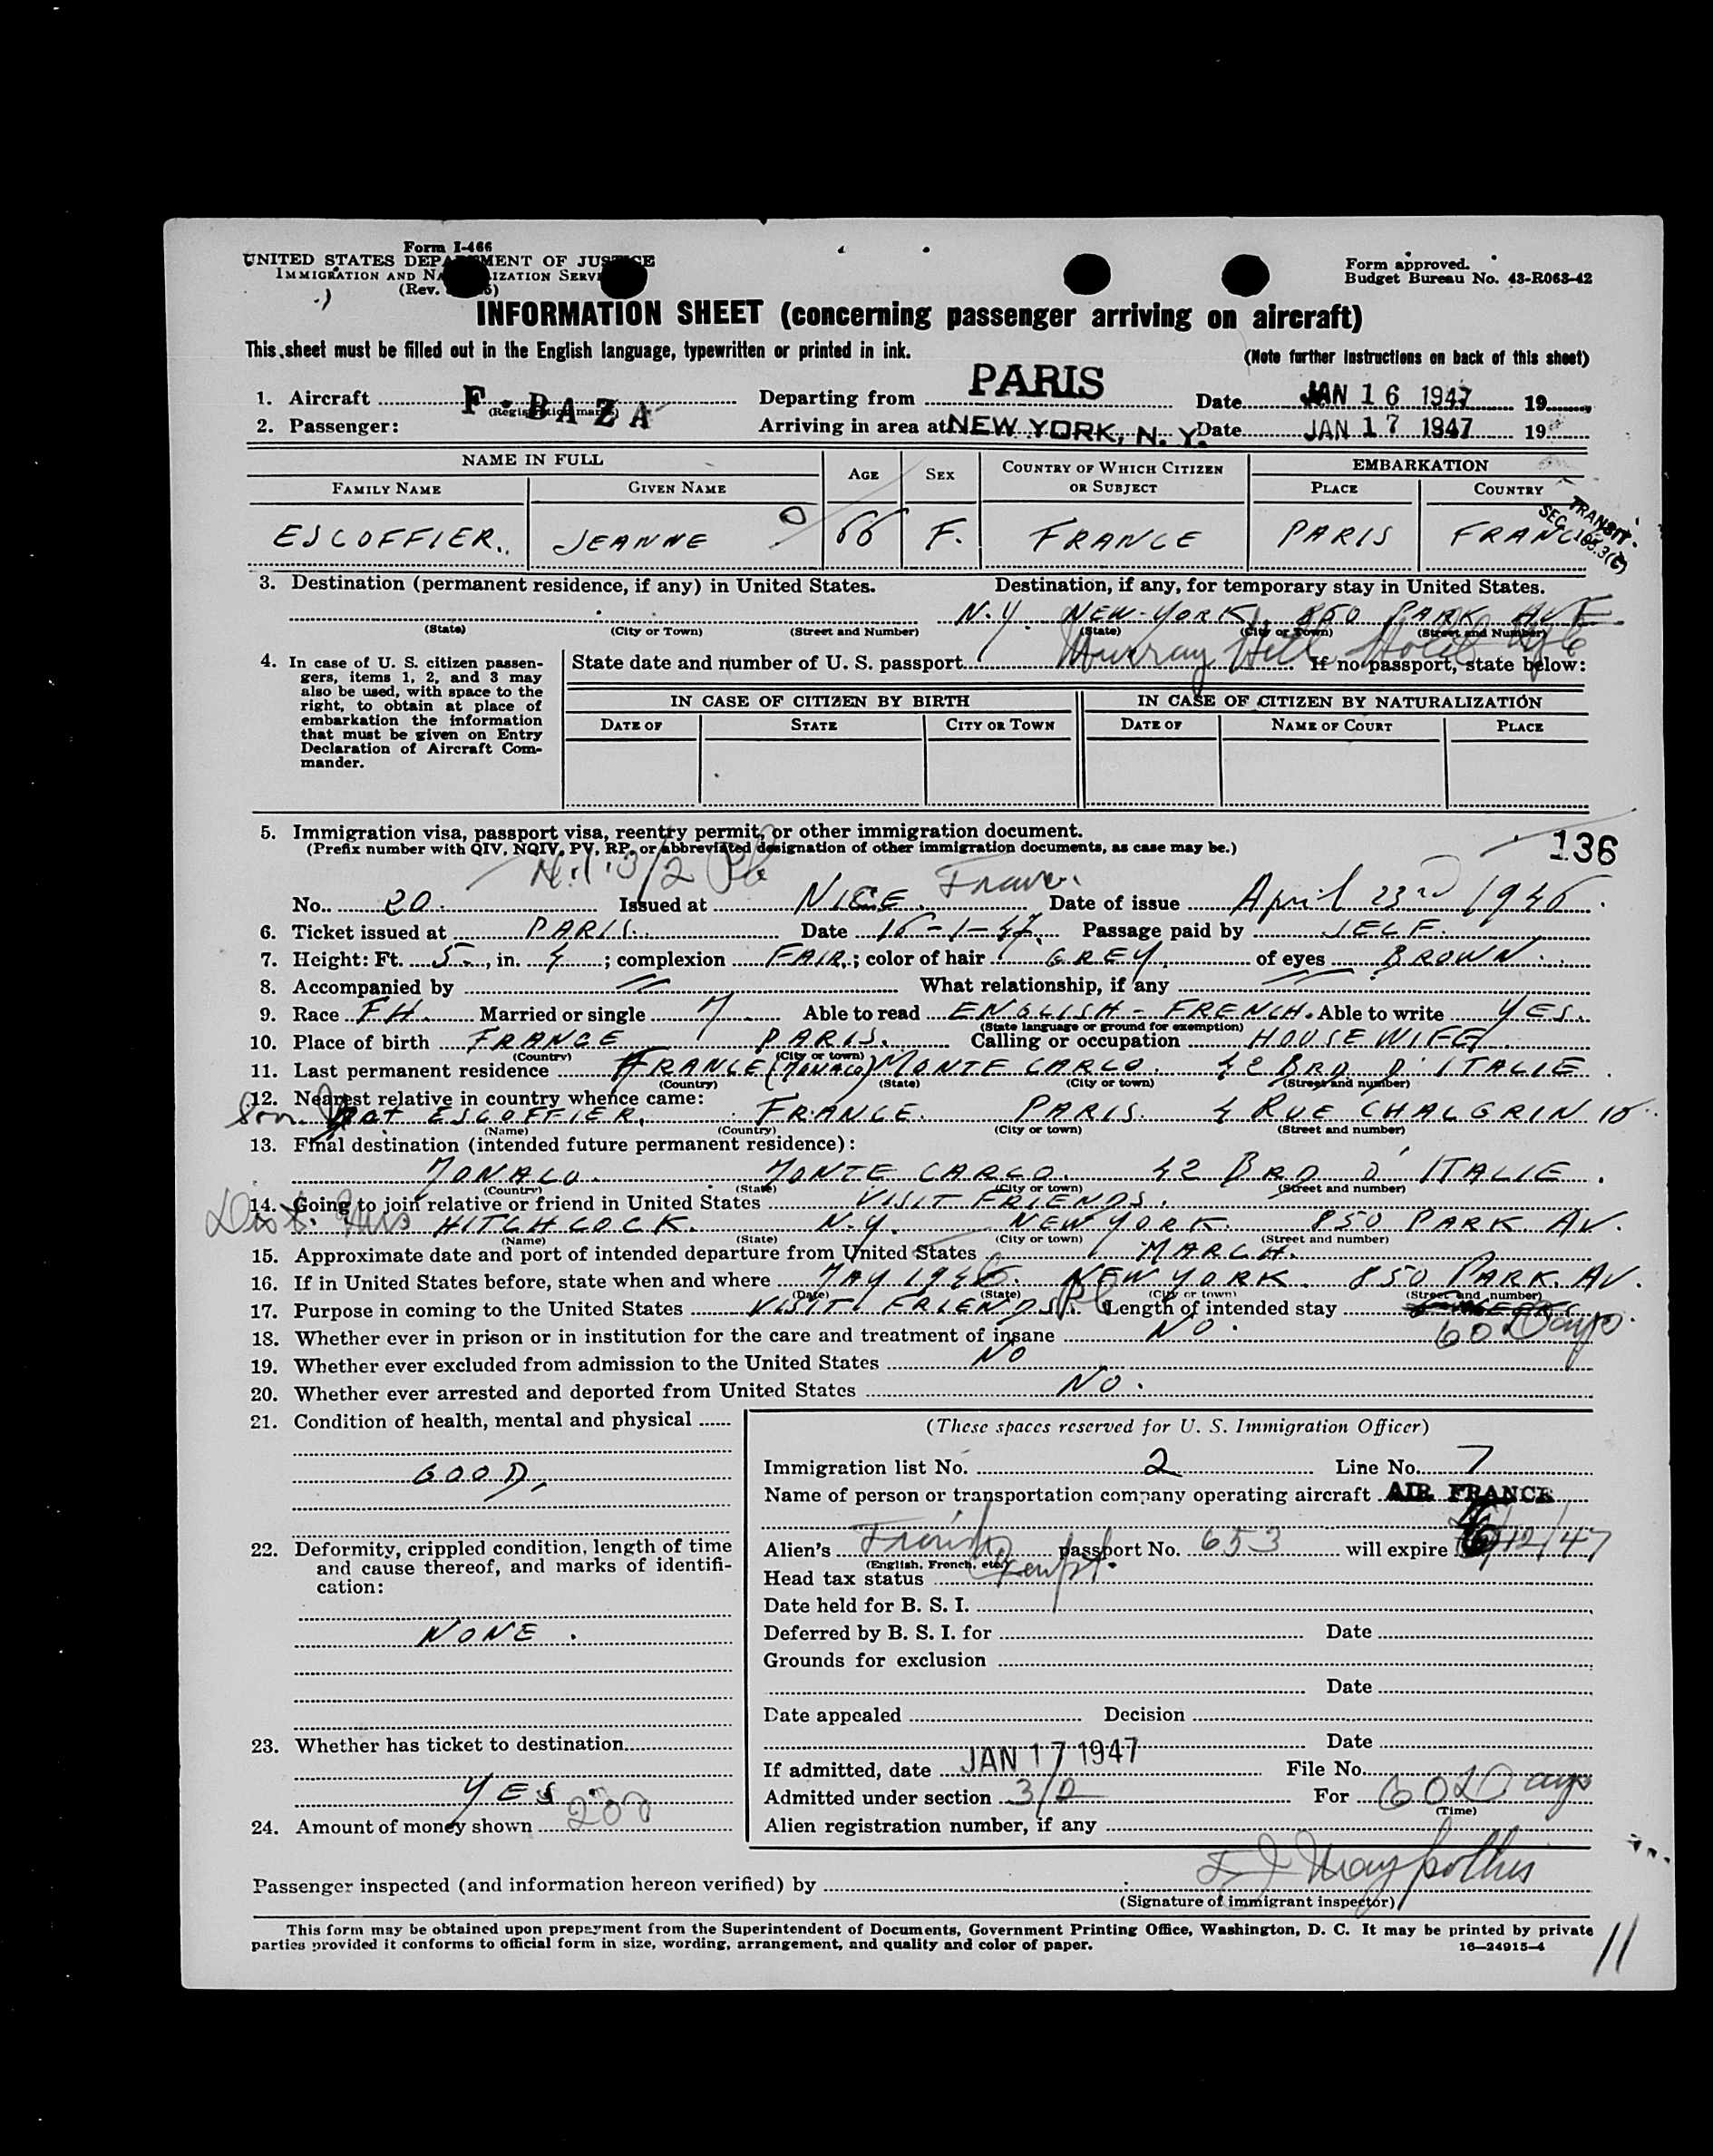 Form I-466
UNITED STATES DEPARTMENT OF JUSTICE
IMMIGRATION AND NATURALIZATION SERVICE
(Rev.
Form approved.
Budget Bureau No. 43-R063-42
INFORMATION SHEET (concerning passenger arriving on aircraft)
This sheet must be filled out in the English language, typewritten or printed in ink.
(Note further instructions on back of this sheet)
1. Aircraft F-BAZA (Registration marks) Departing from PARIS Date JAN 16 1947 19
2. Passenger: Arriving in area at NEW YORK, N. Y. Date JAN 17 1947 19
NAME IN FULL AGE SEX COUNTRY OF WHICH CITIZEN OR SUBJECT EMBARKATION
FAMILY NAME GIVEN NAME PLACE COUNTRY
ESCOFFIER. JEANNE 66 F. FRANCE PARIS FRANCE
TRANSIT.
SEC. 165.3(e)
3. Destination (permanent residence, if any) in United States. Destination, if any, for temporary stay in United States.
N.Y. NEW-YORK. 850 PARK AVE
(State) (City or Town) (Street and Number) (State) (City or Town) (Street and Number)
Murray Hill Hotel NYC
4. In case of U. S. citizen passengers, items 1, 2, and 3 may also be used, with space to the right, to obtain at place of embarkation the information that must be given on Entry Declaration of Aircraft Commander.
State date and number of U. S. passport If no passport, state below:
IN CASE OF CITIZEN BY BIRTH IN CASE OF CITIZEN BY NATURALIZATION
DATE OF STATE CITY OR TOWN DATE OF NAME OF COURT PLACE
5. Immigration visa, passport visa, reentry permit, or other immigration document.
(Prefix number with QIV, NQIV, PV, RP, or abbreviated designation of other immigration documents, as case may be.)
136
3/2
No. 20 Issued at NICE. France Date of issue April 23rd 1946.
6. Ticket issued at PARIS. Date 16-1-47. Passage paid by SELF.
7. Height: Ft. 5, in. 4; complexion FAIR.; color of hair GREY. of eyes BROWN.
8. Accompanied by What relationship, if any
9. Race FH. Married or single M Able to read ENGLISH - FRENCH. Able to write YES.
(State language or ground for exemption)
10. Place of birth FRANCE PARIS. Calling or occupation HOUSE WIFE.
(Country) (City or town)
11. Last permanent residence FRANCE (MONACO) MONTE CARLO. 42 BRD D'ITALIE.
(Country) (State) (City or town) (Street and number)
12. Nearest relative in country whence came:
Son ESCOFFIER, FRANCE. PARIS. 4 RUE CHALGRIN 16.
(Name) (Country) (City or town) (Street and number)
13. Final destination (intended future permanent residence):
MONACO. MONTE CARLO. 42 BRD D'ITALIE.
(Country) (State) (City or town) (Street and number)
14. Going to join relative or friend in United States VISIT FRIENDS.
Mrs HITCHCOCK. N.Y. NEW YORK. 850 PARK AV.
(Name) (State) (City or town) (Street and number)
15. Approximate date and port of intended departure from United States MARCH.
16. If in United States before, state when and where MAY 1946. NEW YORK. 850 PARK. AV.
(Date) (State) (City or town) (Street and number)
17. Purpose in coming to the United States VISIT FRIENDS. Length of intended stay 60 Days.
18. Whether ever in prison or in institution for the care and treatment of insane NO.
19. Whether ever excluded from admission to the United States NO
20. Whether ever arrested and deported from United States NO.
21. Condition of health, mental and physical
GOOD,
22. Deformity, crippled condition, length of time and cause thereof, and marks of identification:
NONE.
23. Whether has ticket to destination
YES.
24. Amount of money shown 200
(These spaces reserved for U. S. Immigration Officer)
Immigration list No. 2 Line No. 7
Name of person or transportation company operating aircraft AIR FRANCE
Alien's French passport No. 653 will expire /12/47
(English, French, etc.)
Head tax status Exempt.
Date held for B. S. I.
Deferred by B. S. I. for Date
Grounds for exclusion
Date
Date appealed Decision
Date
If admitted, date JAN 17 1947 File No.
Admitted under section 3/2 For 60 Days
(Time)
Alien registration number, if any
Passenger inspected (and information hereon verified) by
(Signature of immigrant inspector)
This form may be obtained upon prepayment from the Superintendent of Documents, Government Printing Office, Washington, D. C. It may be printed by private
parties provided it conforms to official form in size, wording, arrangement, and quality and color of paper.
16—24915-4
11